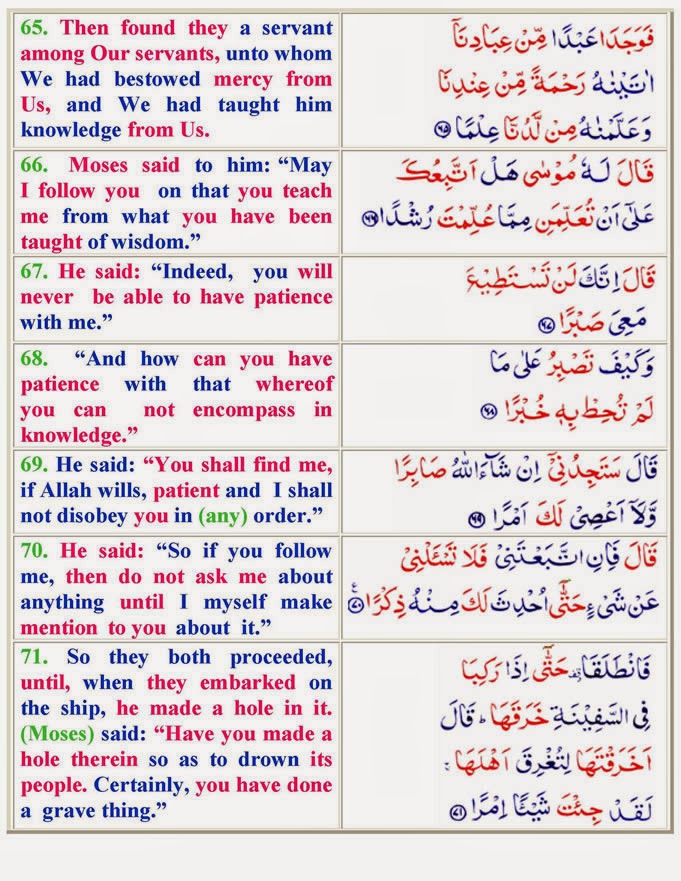 65. Then found they a servant
among Our servants, unto whom
We had bestowed mercy from
Us, and We had taught him
knowledge from Us.
فَوَجَدَا عَبْدًا مِّنْ عِبَادِنَآ
اٰتَيْنٰهُ رَحْمَةً مِّنْ عِنْدِنَا
وَعَلَّمْنٰهُ مِنْ لَّدُنَّا عِلْمًا ﴿۶۵﴾
66. Moses said to him: “May
I follow you on that you teach
me from what you have been
taught of wisdom.”
قَالَ لَهٗ مُوْسٰى هَلْ اَتَّبِعُكَ
عَلٰٓى اَنْ تُعَلِّمَنِ مِمَّا عُلِّمْتَ رُشْدًا ﴿۶۶﴾
67. He said: “Indeed, you will
never be able to have patience
with me.”
قَالَ اِنَّكَ لَنْ تَسْتَطِيْعَ
مَعِىَ صَبْرًا ﴿۶۷﴾
68. “And how can you have
patience with that whereof
you can not encompass in
knowledge.”
وَكَيْفَ تَصْبِرُ عَلٰى مَا
لَمْ تُحِطْ بِهٖ خُبْرًا ﴿۶۸﴾
69. He said: “You shall find me,
if Allah wills, patient and I shall
not disobey you in (any) order.”
قَالَ سَتَجِدُنِىْۤ اِنْ شَآءَ اللّٰهُ صَابِرًا
وَّلَاۤ اَعْصِىْ لَكَ اَمْرًا ﴿۶۹﴾
70. He said: “So if you follow
me, then do not ask me about
anything until I myself make
mention to you about it.”
قَالَ فَاِنِ اتَّبَعْتَنِىْ فَلَا تَسْـَٔلْنِىْ
عَنْ شَىْءٍ حَتّٰٓى اُحْدِثَ لَكَ مِنْهُ ذِكْرًا ﴿۷۰﴾
71. So they both proceeded,
until, when they embarked on
the ship, he made a hole in it.
(Moses) said: “Have you made a
hole therein so as to drown its
people. Certainly, you have done
a grave thing.”
فَانْطَلَقَا حَتّٰٓى اِذَا رَكِبَا
فِى السَّفِيْنَةِ خَرَقَهَا ؕ قَالَ
اَخَرَقْتَهَا لِتُغْرِقَ اَهْلَهَا ۚ
لَقَدْ جِئْتَ شَيْـًٔا اِمْرًا ﴿۷۱﴾